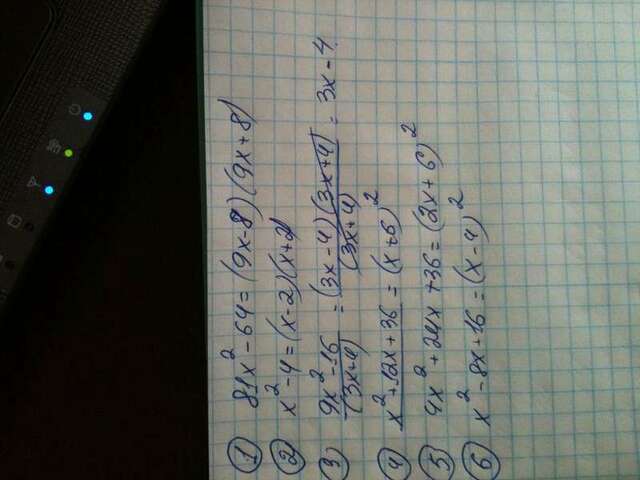 ① 81x² - 64 = (9x - 8)(9x + 8)
② x² - 4 = (x - 2)(x + 2)
③ 9x² - 16 / (3x + 4) = (3x - 4)(3x + 4) / (3x + 4) = 3x - 4
④ x² + 12x + 36 = (x + 6)²
⑤ 4x² + 24x + 36 = (2x + 6)²
⑥ x² - 8x + 16 = (x - 4)²